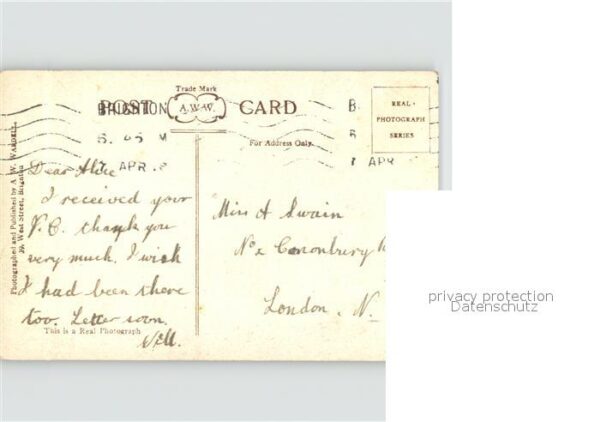 Trade Mark
POST CARD
A.W.W.
BRIGHTON
APR
B
APR
REAL
PHOTOGRAPH
SERIES
For Address Only.
Photographed and Published by A. W. WARDELL,
West Street, Brighton
Dear Alice
I received your
P.C. thank you
very much. I wish
I had been there
too. Letter soon.
This is a Real Photograph
Miss A Swain
Canonbury
London. N.
privacy protection
Datenschutz